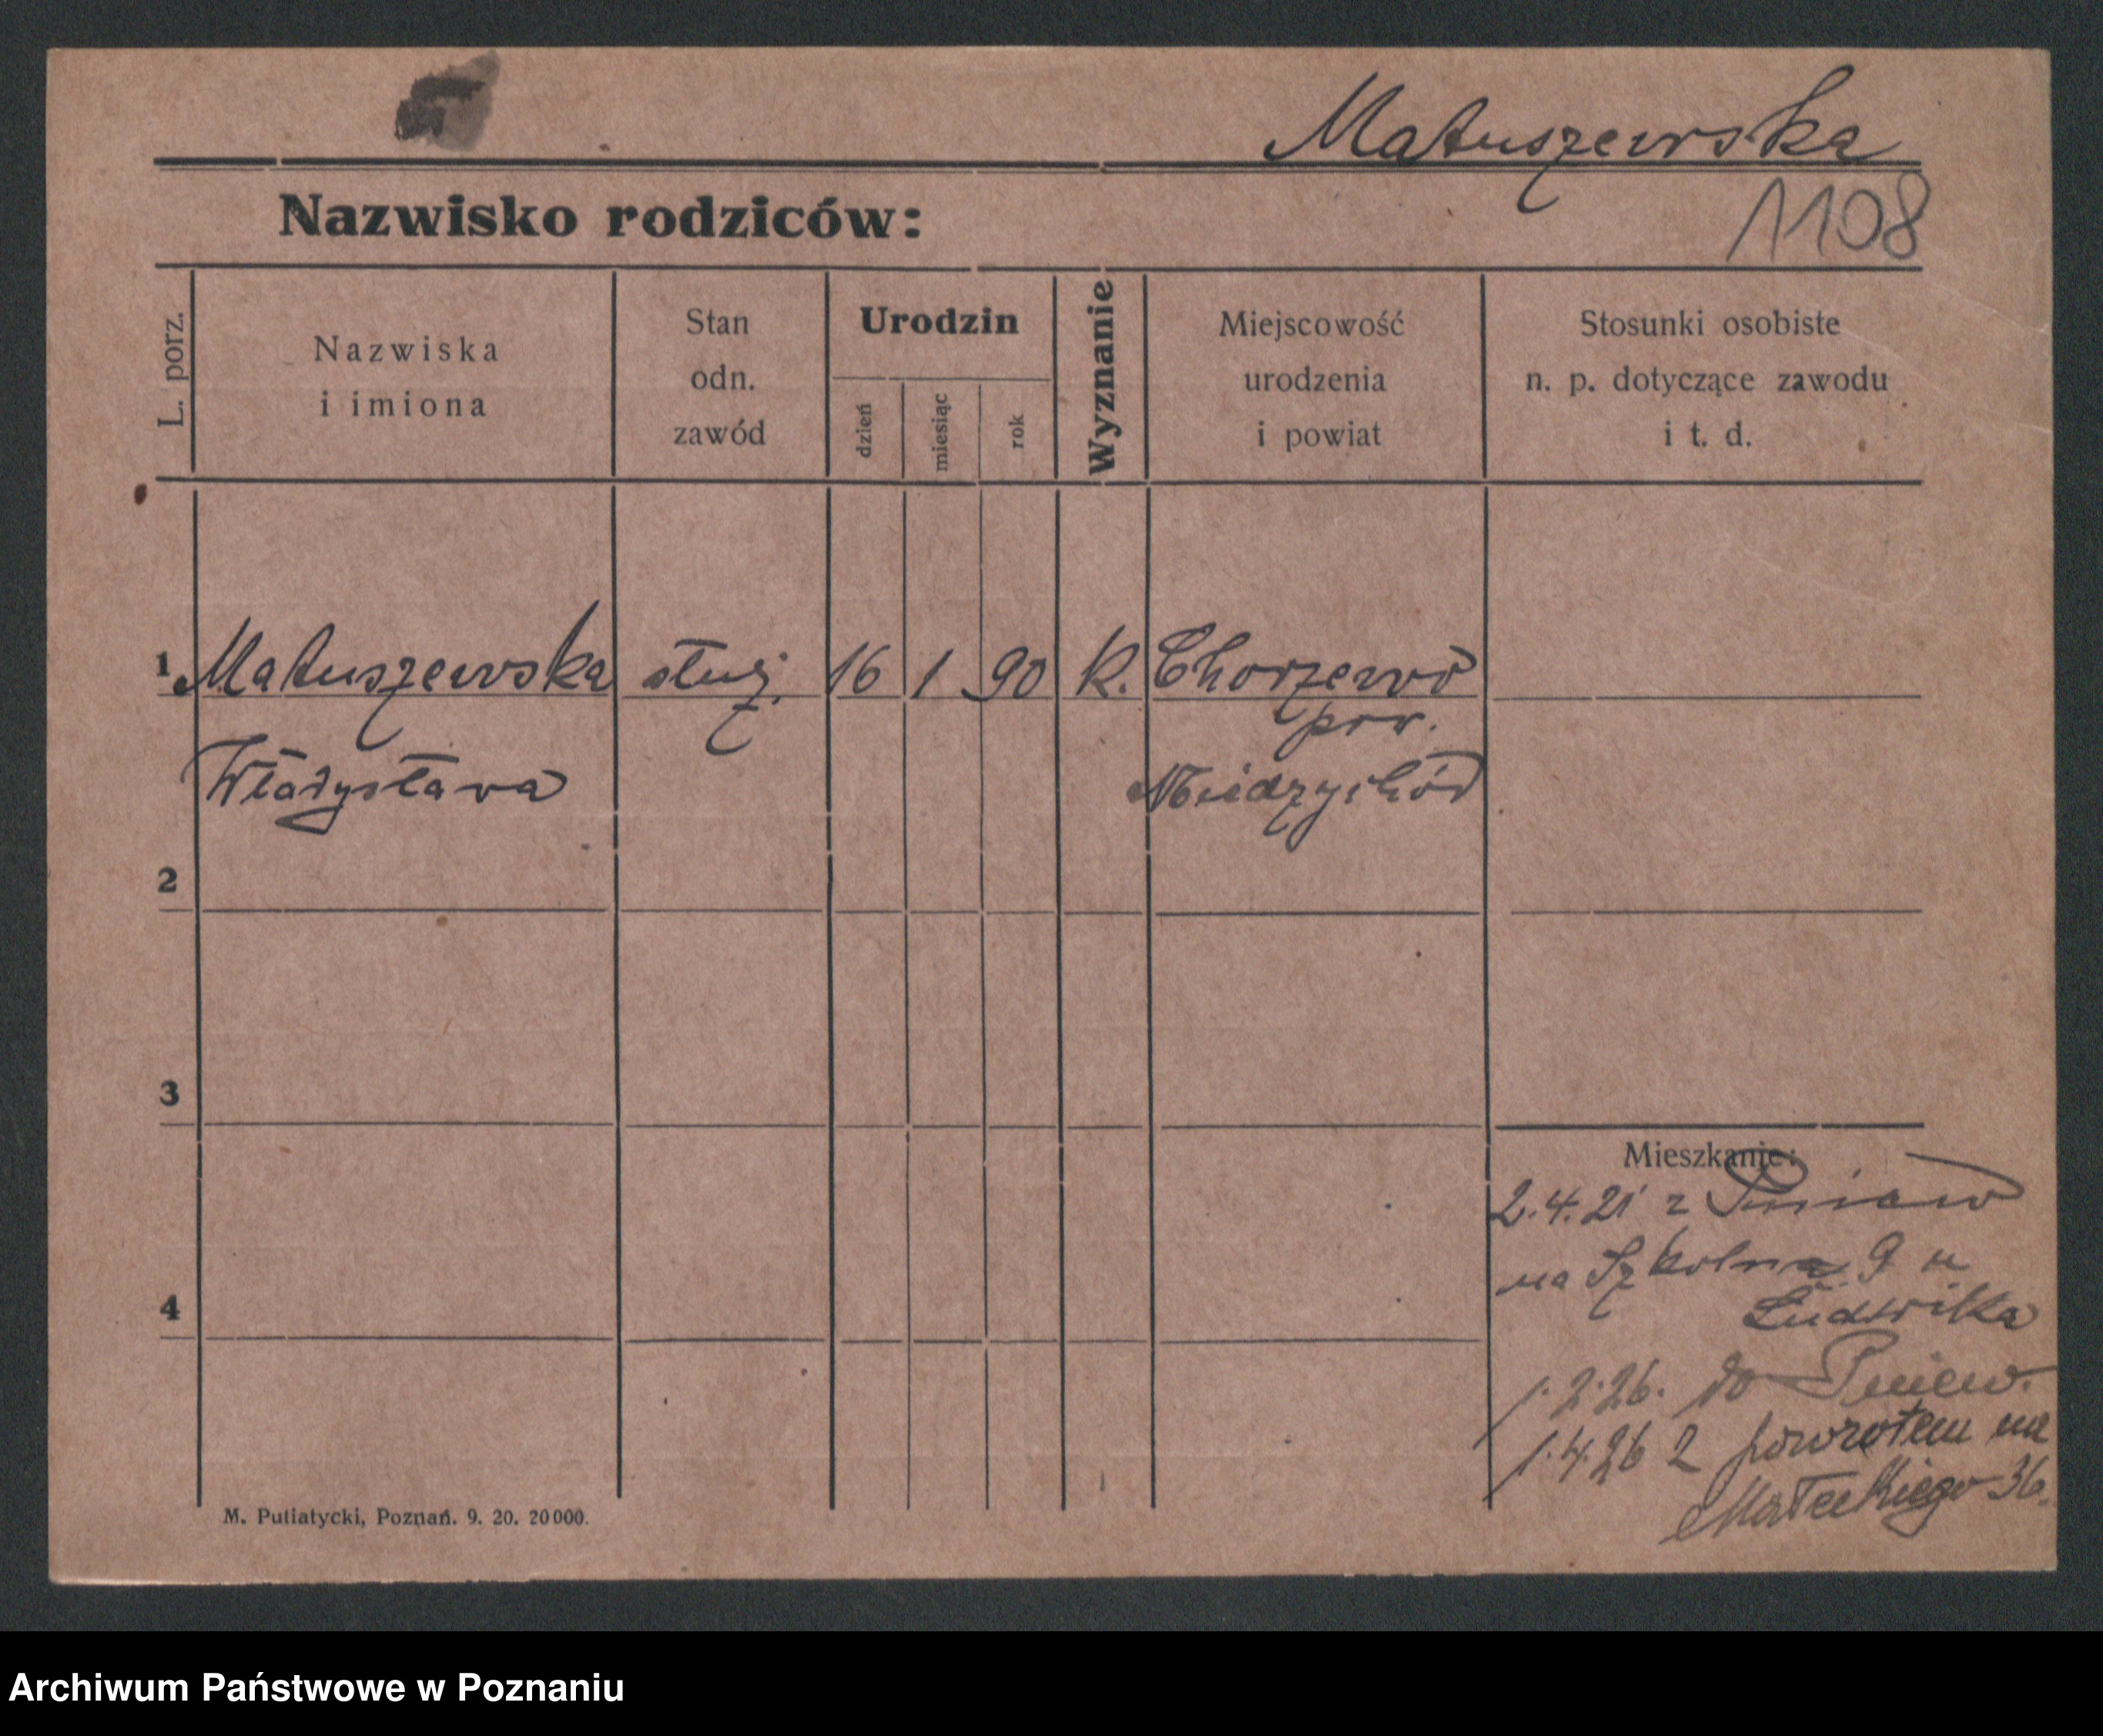 Matuszewska
1108
Nazwisko rodziców:
L. porz.
Nazwiska
i imiona
Stan
odn.
zawód
Urodzin
dzień
miesiąc
rok
Wyznanie
Miejscowość
urodzenia
i powiat
Stosunki osobiste
n. p. dotyczące zawodu
i t. d.
1 Matuszewska służ. 16 1 90 k. Chorzewo
pow.
Władysława Międzychód
2
3
Mieszkanie:
2.4.21 z Pniew
na Szkolna 9 u
Ludwika
4
1.2.26. do Pniew.
1.4.26 z powrotem na
Małeckiego 36.
M. Putiatycki, Poznań. 9. 20. 20000.
Archiwum Państwowe w Poznaniu